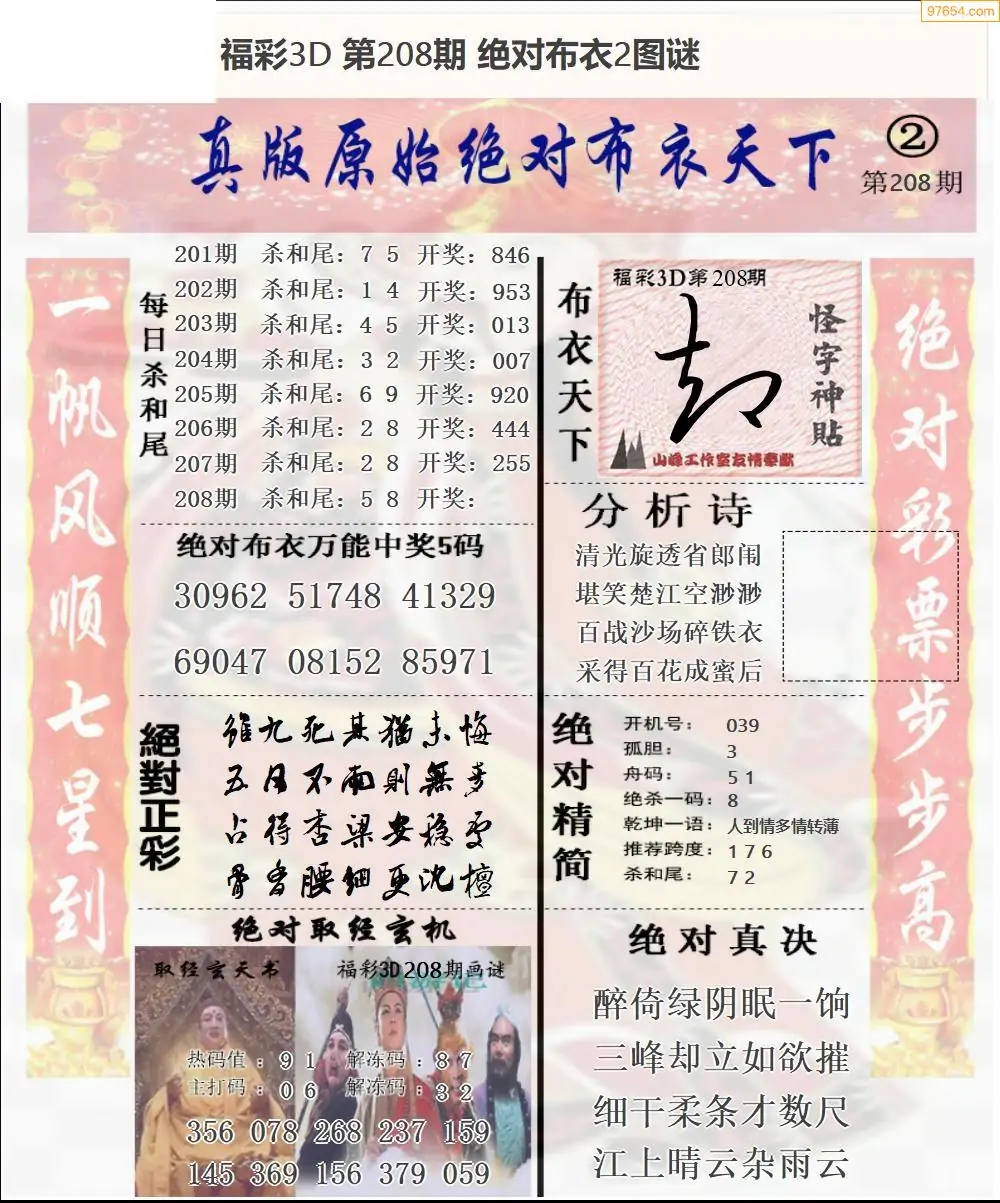 97654.com
福彩3D 第208期 绝对布衣2图谜
真版原始绝对布衣天下
②
第208期
一帆风顺七星到
每日杀和尾
201期 杀和尾：7 5 开奖：846
202期 杀和尾：1 4 开奖：953
203期 杀和尾：4 5 开奖：013
204期 杀和尾：3 2 开奖：007
205期 杀和尾：6 9 开奖：920
206期 杀和尾：2 8 开奖：444
207期 杀和尾：2 8 开奖：255
208期 杀和尾：5 8 开奖：
绝对布衣万能中奖5码
30962 51748 41329
69047 08152 85971
絕對正彩
雖九死其猶未悔
五月不雨則無麥
占得杏梁安稳处
骨香腰细更沈檀
绝对取经玄机
取经玄天书
福彩3D208期画谜
热码值：9 1 解冻码：8 7
主打码：0 6 解冻码：3 2
356 078 268 237 159
145 369 156 379 059
布衣天下
福彩3D第208期
怪字神貼
山峰工作室友情奉献
分析诗
清光旋透省郎闱
堪笑楚江空渺渺
百战沙场碎铁衣
采得百花成蜜后
绝对精简
开机号：039
孤胆：3
舟码：5 1
绝杀一码：8
乾坤一语：人到情多情转薄
推荐跨度：1 7 6
杀和尾：7 2
绝对真决
醉倚绿阴眠一饷
三峰却立如欲摧
细干柔条才数尺
江上晴云杂雨云
绝对彩票步步高